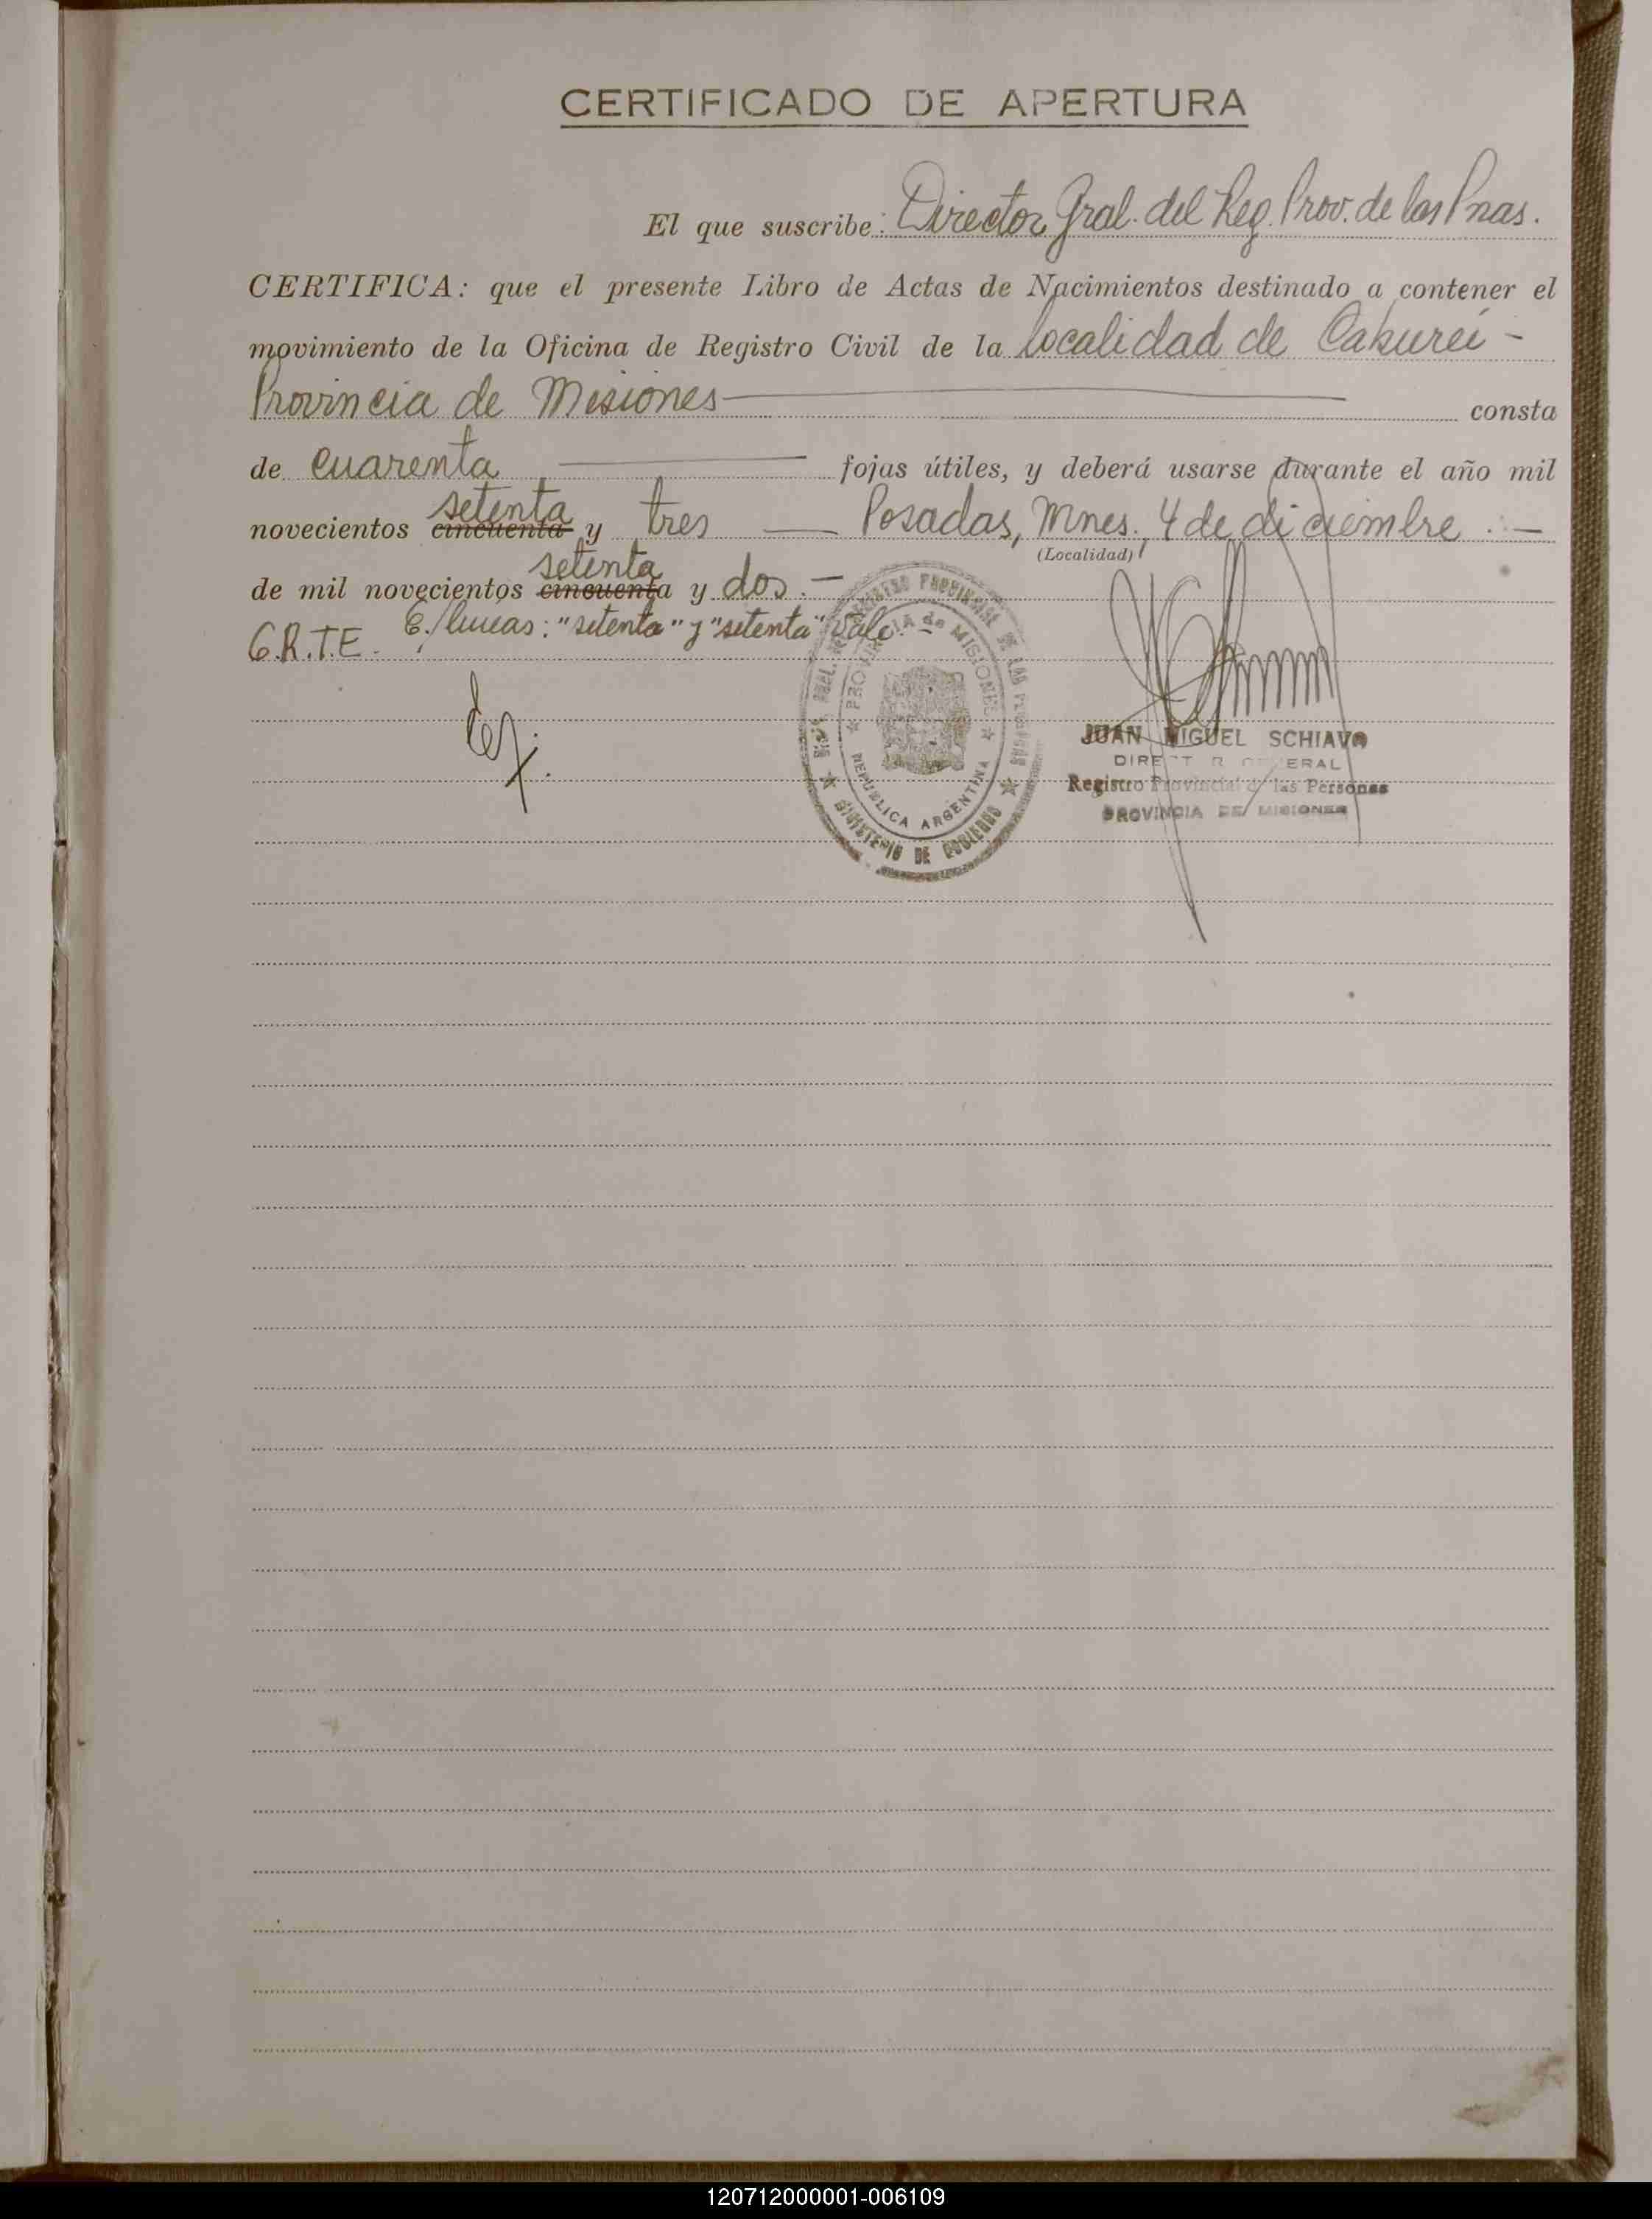 CERTIFICADO DE APERTURA
El que suscribe: Director Gral. del Reg. Prov. de las Pnas.
CERTIFICA: que el presente Libro de Actas de Nacimientos destinado a contener el
movimiento de la Oficina de Registro Civil de la localidad de Cakureí -
Provincia de Misiones consta
de cuarenta fojas útiles, y deberá usarse durante el año mil
setenta
novecientos cincuenta y tres — Posadas, Mnes. 4 de diciembre . —
(Localidad)
setenta
de mil novecientos cincuenta y dos. —
E./lineas: "setenta" y "setenta" Vale. —
C.R.T.E.
REGISTRO PROVINCIAL DE LAS PERSONAS
PROVINCIA de MISIONES
REPUBLICA ARGENTINA
MINISTERIO DE GOBIERNO
JUAN MIGUEL SCHIAVO
DIRECTOR GENERAL
Registro Provincial de las Personas
PROVINCIA DE MISIONES
120712000001-006109